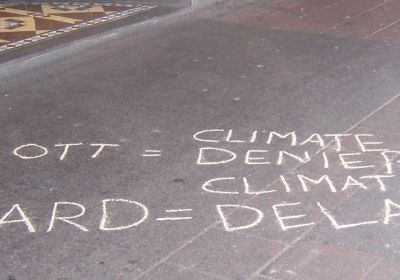 OTT = CLIMATE DENIER
ARD = CLIMATE DELA